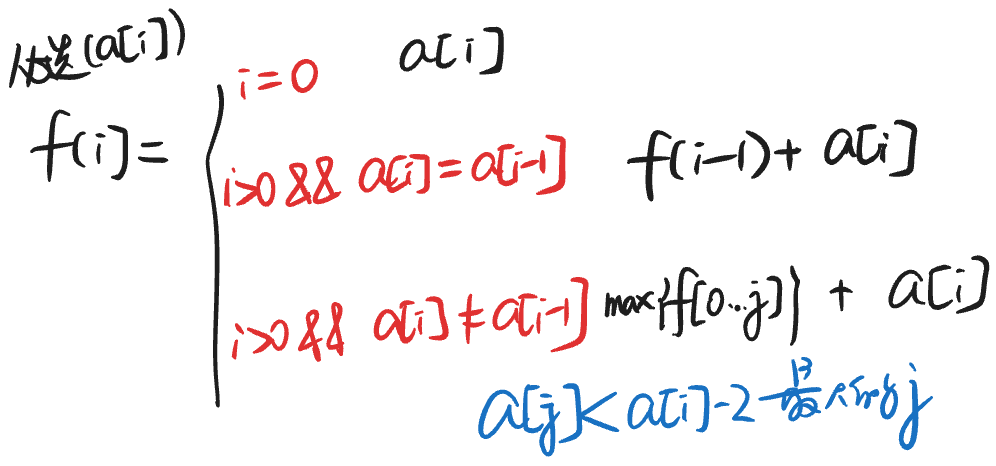 必选(a[i])
f[i]=
i=0 a[i]
i>0 && a[i]=a[i-1] f(i-1)+a[i]
i>0 && a[i]≠a[i-1] max{f[0...j]} + a[i]
a[j]<a[i]-2 j